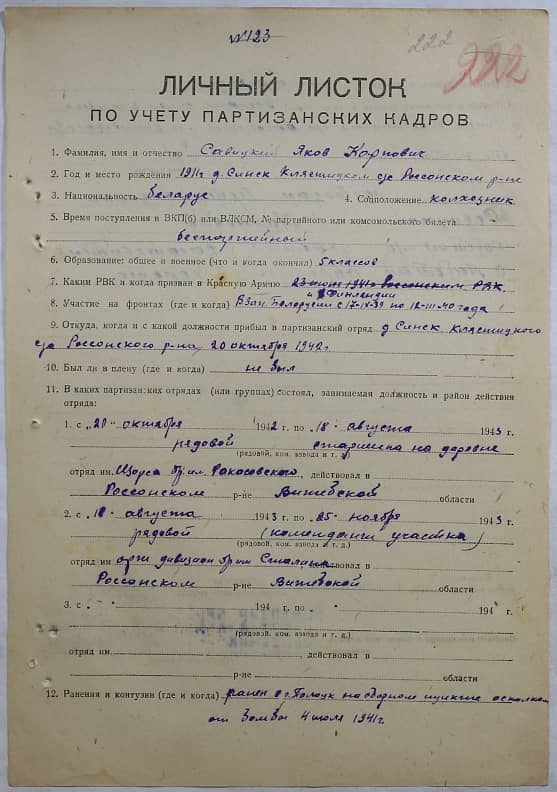 №123
222
222
ЛИЧНЫЙ ЛИСТОК
ПО УЧЕТУ ПАРТИЗАНСКИХ КАДРОВ
1. Фамилия, имя и отчество Савицкий Яков Карпович
2. Год и место рождения 1911г д. Синск Клястицком с/с Россонском р-не
3. Национальность беларус 4. Соцположение колхозник
5. Время поступления в ВКП(б) или ВЛКСМ, № партийного или комсомольского билета
беспартейный
6. Образование: общее и военное (что и когда окончил) 5 классов
7. Каким РВК и когда призван в Красную Армию 23 июня 1941г Россонским РВК
и Финляндии
8. Участие на фронтах (где и когда) В Зап. Белорусии с 17-IX-39 по 12-III-40 года
9. Откуда, когда и с какой должности прибыл в партизанский отряд д. Синск Клястицкого
с/с Россонского р-на, 20 октября 1942г.
10. Был ли в плену (где и когда) не был
11. В каких партизанских отрядах (или группах) состоял, занимаемая должность и район действия
отряда:
1. с „20" октября 1942 г. по „18" августа 1943 г.
рядовой старшина на деревне
(рядовой, ком. взвода и т. д.)
отряд им. Щорса бр. им. Ракосовского, действовал в
Россонском р-не Витебской области
2. с „18" августа 1943 г. по „25" ноября 1943 г.
рядовой (комендант участка)
(рядовой, ком. взвода и т. д.)
отряд им. дивизион бр им Сталина действовал в
Россонском р-не Витебской области
3. с „ " 194 г. по „ " 194 г.
(рядовой, ком. взвода и т. д.)
отряд им. , действовал в
р-не области
12. Ранения и контузии (где и когда) ранен в г. Полоцк на сборном пункте осколком
от бомбы 4 июля 1941г.